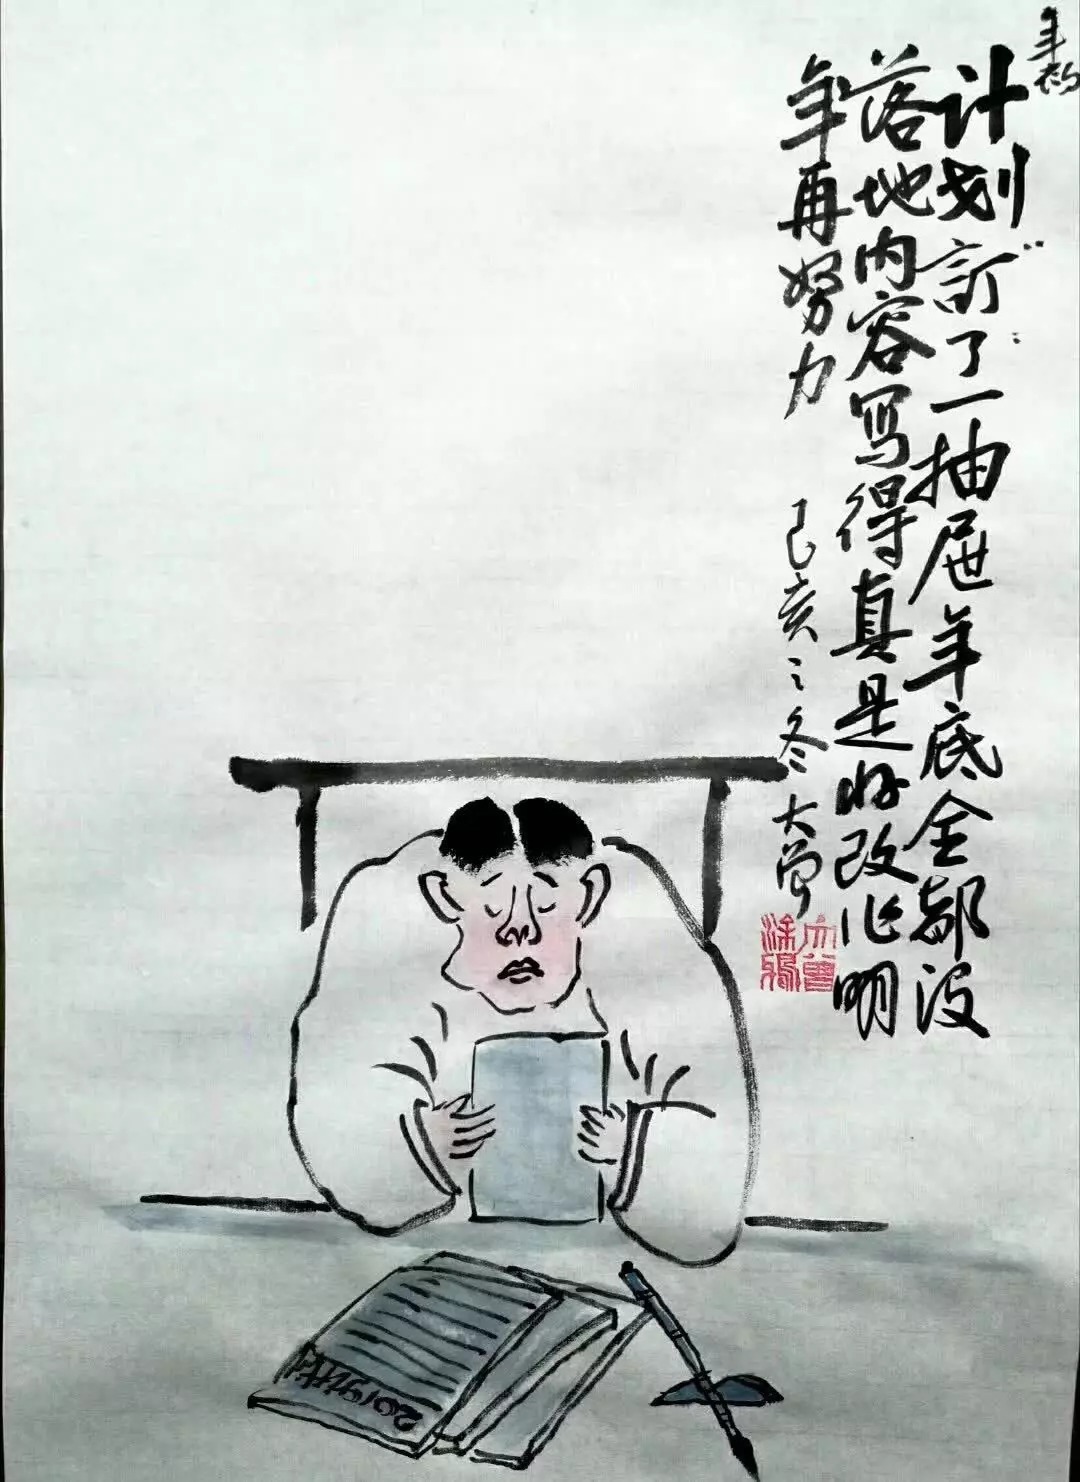 年初
计划訂了一抽屉年底全部没
落地内容写得真是好改作明
年再努力
己亥之冬 大曾
大曾
涂鴉
2019计划